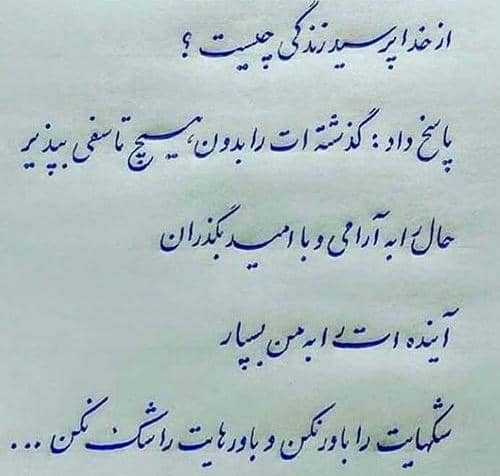 از خدا پرسید زندگی چیست ؟
پاسخ داد : گذشته ات را بدون هیچ تاسفی بپذیر
حال را به آرامی و با امید بگذران
آینده ات را به من بسپار
شکهایت را باور نکن و باورهایت را شک نکن ...